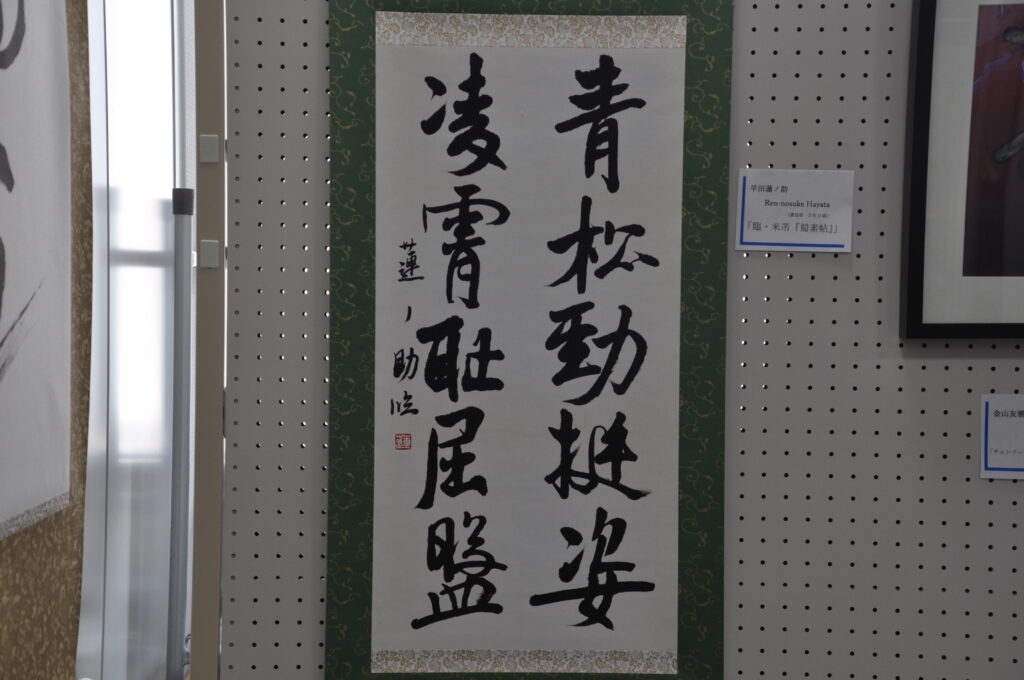 青松勁挺姿
凌霄耻屈盤
蓮ノ助臨
早田蓮ノ助
Ren-nosuke Hayata
「臨・米芾『蜀素帖』」
金山友
「チャンプー